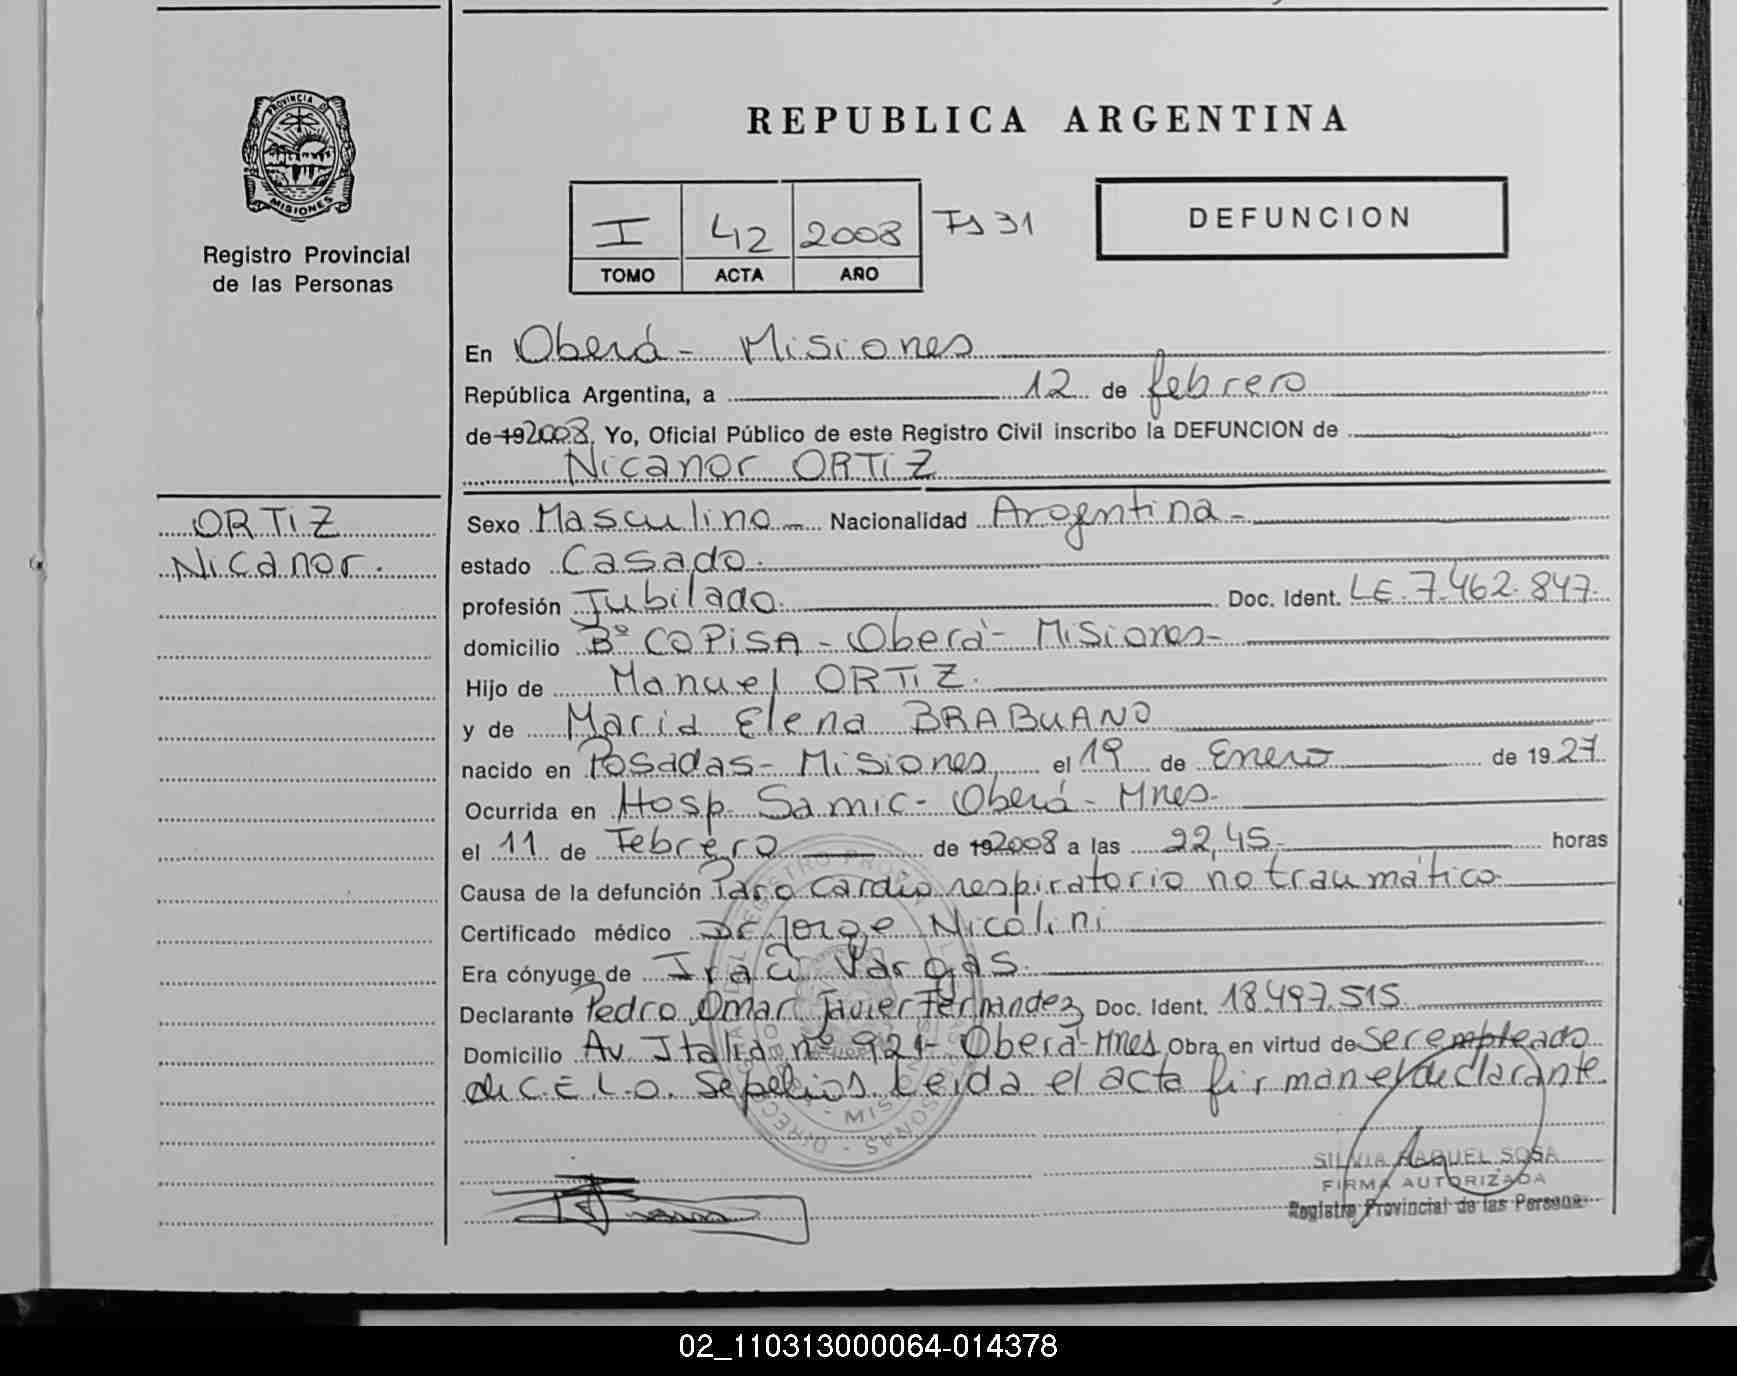 PROVINCIA DE
MISIONES
Registro Provincial
de las Personas
REPUBLICA ARGENTINA
I 42 2008 Fs 31
TOMO ACTA AÑO
DEFUNCION
En Oberá - Misiones
República Argentina, a 12 de febrero
de 192008. Yo, Oficial Público de este Registro Civil inscribo la DEFUNCION de
Nicanor ORTIZ
ORTIZ
Nicanor.
Sexo Masculino Nacionalidad Argentina -
estado Casado.
profesión Jubilado. Doc. Ident. LE. 7.462.847.
domicilio Bº COPISA - Oberá - Misiones -
Hijo de Manuel ORTIZ.
y de María Elena BRABUANO
nacido en Posadas - Misiones, el 19 de Enero de 1927.
Ocurrida en Hosp. Samic - Oberá - Mnes.
el 11 de Febrero de 192008 a las 22,45.- horas
Causa de la defunción Paro cardio respiratorio no traumático
Certificado médico Dr. Jorge Nicolini
Era cónyuge de Vargas.
Declarante Pedro Omar Javier Fernández Doc. Ident. 18.497.515
Domicilio Av. Italia nº 921 - Oberá - Mnes. Obra en virtud de ser empleado
de C.E.L.O. Sepelios. Leída el acta firman el declarante.
SILVIA RAQUEL SOSA
FIRMA AUTORIZADA
Registro Provincial de las Personas
02_110313000064-014378